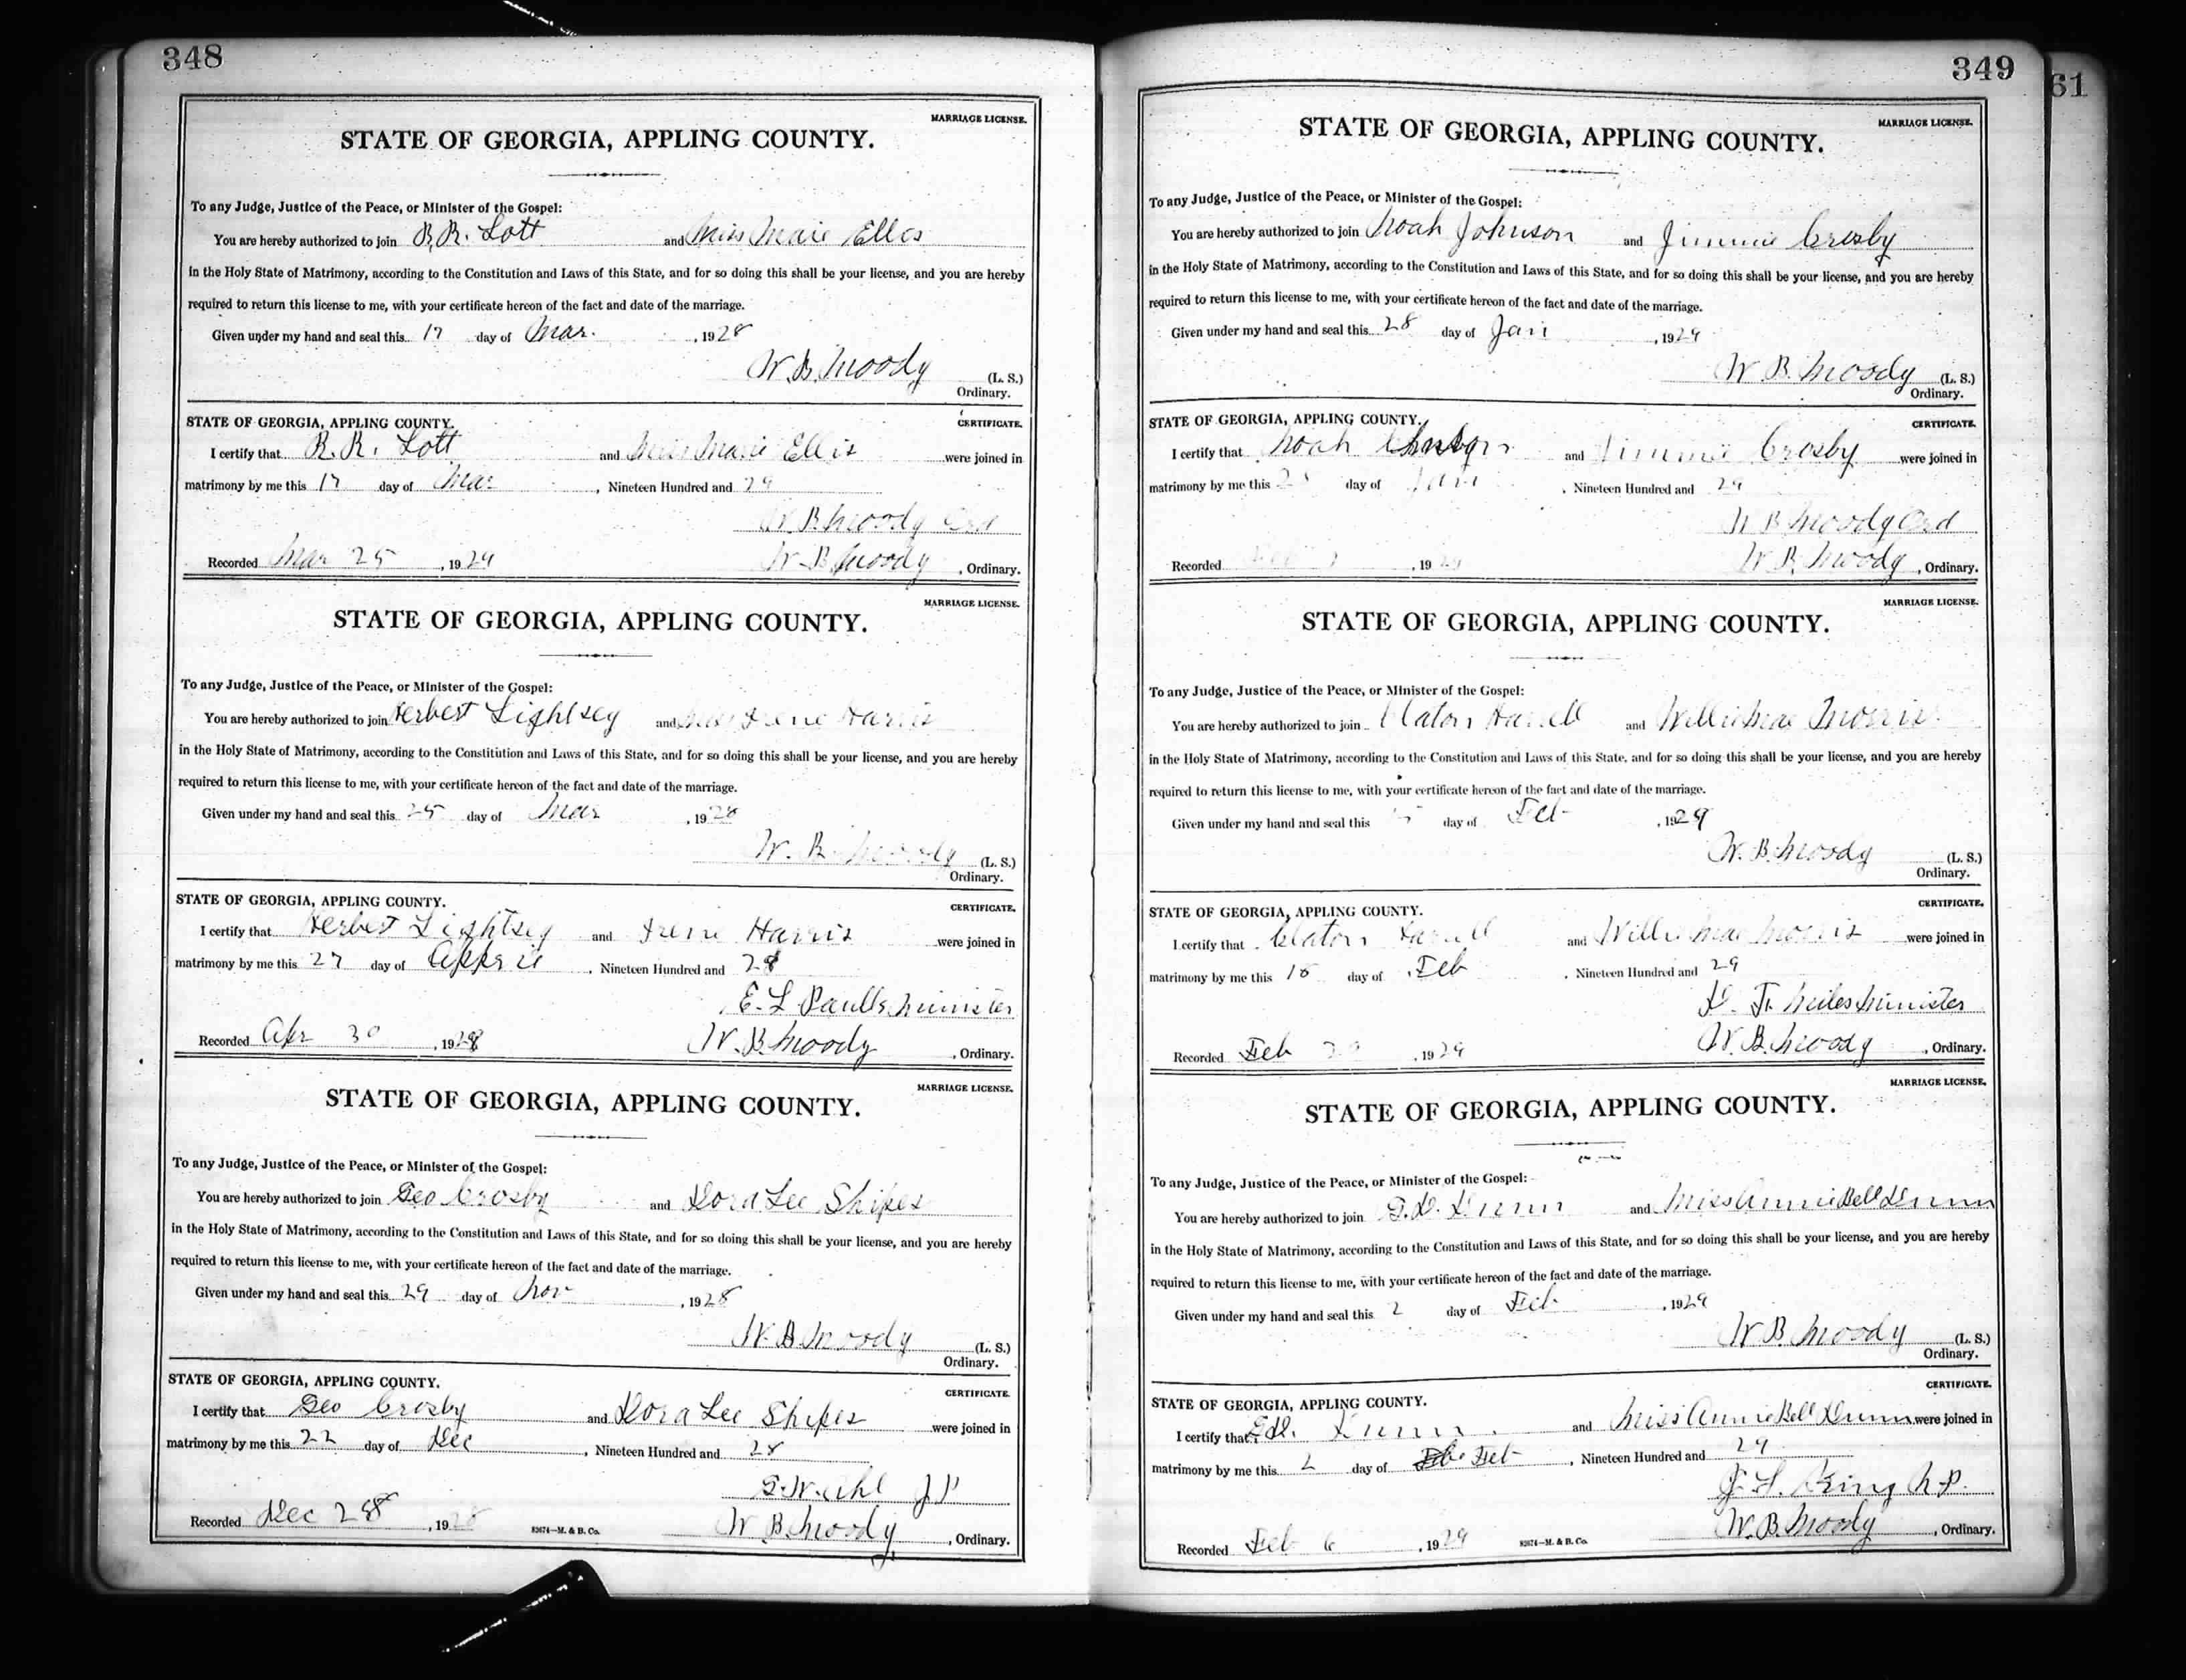 348
MARRIAGE LICENSE.
STATE OF GEORGIA, APPLING COUNTY.
To any Judge, Justice of the Peace, or Minister of the Gospel:
You are hereby authorized to join R.R. Lott and Miss Marie Ellis
in the Holy State of Matrimony, according to the Constitution and Laws of this State, and for so doing this shall be your license, and you are hereby
required to return this license to me, with your certificate hereon of the fact and date of the marriage.
Given under my hand and seal this 17 day of Mar. , 1928
W.B. Moody (L. S.)
Ordinary.
STATE OF GEORGIA, APPLING COUNTY.
CERTIFICATE.
I certify that R.R. Lott and Miss Marie Ellis were joined in
matrimony by me this 17 day of Mar , Nineteen Hundred and 29
W.B. Moody Ord
Recorded Mar 25 , 1929 W.B. Moody , Ordinary.
MARRIAGE LICENSE.
STATE OF GEORGIA, APPLING COUNTY.
To any Judge, Justice of the Peace, or Minister of the Gospel:
You are hereby authorized to join Herbert Lightsey and Miss Irene Harris
in the Holy State of Matrimony, according to the Constitution and Laws of this State, and for so doing this shall be your license, and you are hereby
required to return this license to me, with your certificate hereon of the fact and date of the marriage.
Given under my hand and seal this 25 day of Mar , 1928
W. B. Moody (L. S.)
Ordinary.
STATE OF GEORGIA, APPLING COUNTY.
CERTIFICATE.
I certify that Herbert Lightsey and Irene Harris were joined in
matrimony by me this 27 day of , Nineteen Hundred and 28
E. L. Paulk minister
Recorded Apr 30 , 1928 W.B. Moody , Ordinary.
MARRIAGE LICENSE.
STATE OF GEORGIA, APPLING COUNTY.
To any Judge, Justice of the Peace, or Minister of the Gospel:
You are hereby authorized to join Geo Crosby and Dora Lee Shipes
in the Holy State of Matrimony, according to the Constitution and Laws of this State, and for so doing this shall be your license, and you are hereby
required to return this license to me, with your certificate hereon of the fact and date of the marriage.
Given under my hand and seal this 29 day of Nov , 1928
W. B. Moody (L. S.)
Ordinary.
STATE OF GEORGIA, APPLING COUNTY.
CERTIFICATE.
I certify that Geo Crosby and Dora Lee Shipes were joined in
matrimony by me this 22 day of Dec , Nineteen Hundred and 28
J P
Recorded Dec 28 , 1928 82674—M. & B. Co. W B. Moody , Ordinary.
349
61
MARRIAGE LICENSE.
STATE OF GEORGIA, APPLING COUNTY.
To any Judge, Justice of the Peace, or Minister of the Gospel:
You are hereby authorized to join Noah Johnson and Jimmie Crosby
in the Holy State of Matrimony, according to the Constitution and Laws of this State, and for so doing this shall be your license, and you are hereby
required to return this license to me, with your certificate hereon of the fact and date of the marriage.
Given under my hand and seal this 28 day of Jan , 1929
W B. Moody (L. S.)
Ordinary.
STATE OF GEORGIA, APPLING COUNTY.
CERTIFICATE.
I certify that Noah and Jimmie Crosby were joined in
matrimony by me this day of Jan , Nineteen Hundred and 29
W B Moody Ord
Recorded , 1929 W B. Moody , Ordinary.
MARRIAGE LICENSE.
STATE OF GEORGIA, APPLING COUNTY.
To any Judge, Justice of the Peace, or Minister of the Gospel:
You are hereby authorized to join Claton Harrell and Willie Mae Morris
in the Holy State of Matrimony, according to the Constitution and Laws of this State, and for so doing this shall be your license, and you are hereby
required to return this license to me, with your certificate hereon of the fact and date of the marriage.
Given under my hand and seal this day of Feb , 1929
W. B. Moody (L. S.)
Ordinary.
STATE OF GEORGIA, APPLING COUNTY.
CERTIFICATE.
I certify that Claton Harrell and Willie Mae Morris were joined in
matrimony by me this day of Feb , Nineteen Hundred and 29
Miles minister
Recorded Feb , 1929 W. B. Moody , Ordinary.
MARRIAGE LICENSE.
STATE OF GEORGIA, APPLING COUNTY.
To any Judge, Justice of the Peace, or Minister of the Gospel:
You are hereby authorized to join Dunn and Miss Annie Bell Dunn
in the Holy State of Matrimony, according to the Constitution and Laws of this State, and for so doing this shall be your license, and you are hereby
required to return this license to me, with your certificate hereon of the fact and date of the marriage.
Given under my hand and seal this 2 day of Feb. , 1929
W B. Moody (L. S.)
Ordinary.
STATE OF GEORGIA, APPLING COUNTY.
CERTIFICATE.
I certify that Dunn and Miss Annie Bell Dunn were joined in
matrimony by me this 2 day of Feb , Nineteen Hundred and 29
King N.P.
Recorded Feb 6 , 1929 82674—M. & B. Co. W. B. Moody , Ordinary.